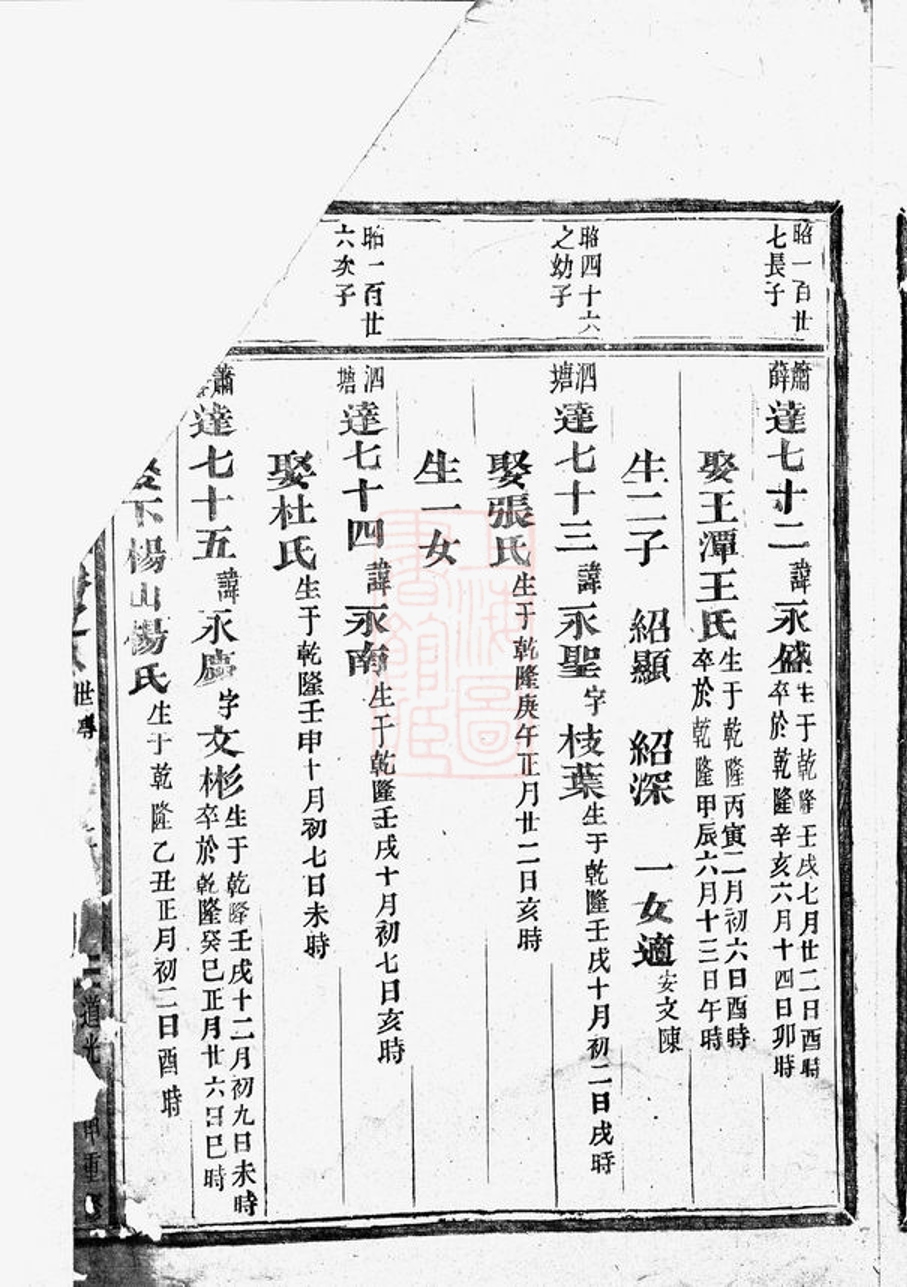 昭一百廿
七長子
蕭
薛
達七十二諱永盛
生于乾隆壬戌七月廿二日酉時
卒於乾隆辛亥六月十四日卯時
娶王潭王氏
生于乾隆丙寅二月初六日酉時
卒於乾隆甲辰六月十三日午時
生二子 紹顯 紹深 一女適安文陳
昭四十六
之幼子
泗
塘
達七十三諱永聖字枝葉生于乾隆壬戌十月初二日戌時
娶張氏生于乾隆庚午正月廿二日亥時
生一女
昭一百廿
六次子
泗
塘
達七十四諱永南生于乾隆壬戌十月初七日亥時
娶杜氏生于乾隆壬申十月初七日未時
蕭
達七十五諱永慶字文彬
生于乾隆壬戌十二月初九日未時
卒於乾隆癸巳正月廿六日巳時
下楊山楊氏生于乾隆乙丑正月初二日酉時
世傳
道光
甲
重
上海圖書館藏